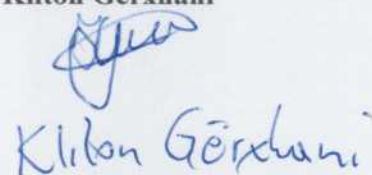 Kliton Gërxhani
Kliton Gërxhani